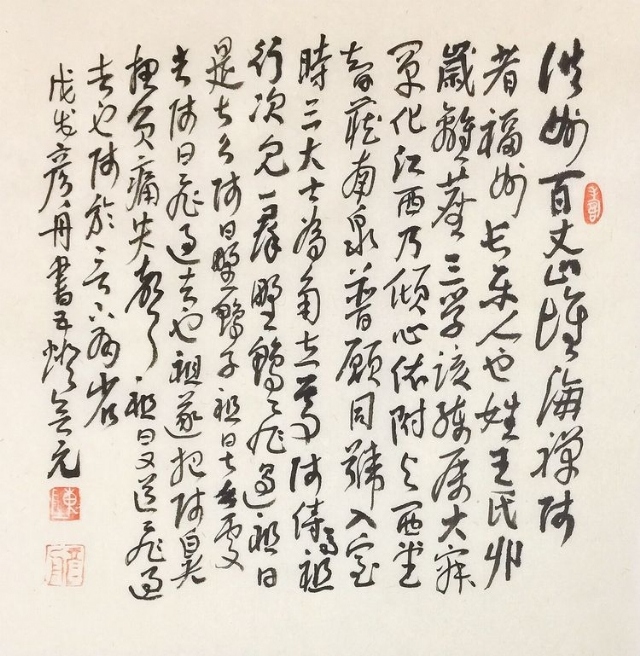 洪州百丈山懷海禪师
者福州長樂人也姓王氏丱
歲離塵三學該練属大寂
闡化江西乃傾心依附与西堂
智蔵南泉普願同號入室
時三大士為角立焉师侍馬祖
行次見一群野鴨飛過祖曰
是甚么师曰野鴨子祖曰甚處
去师曰飛過去也祖遂把师鼻
扭負痛失聲祖曰又道飛過
去也师於言下有省
戊戌彦舟書五燈会元